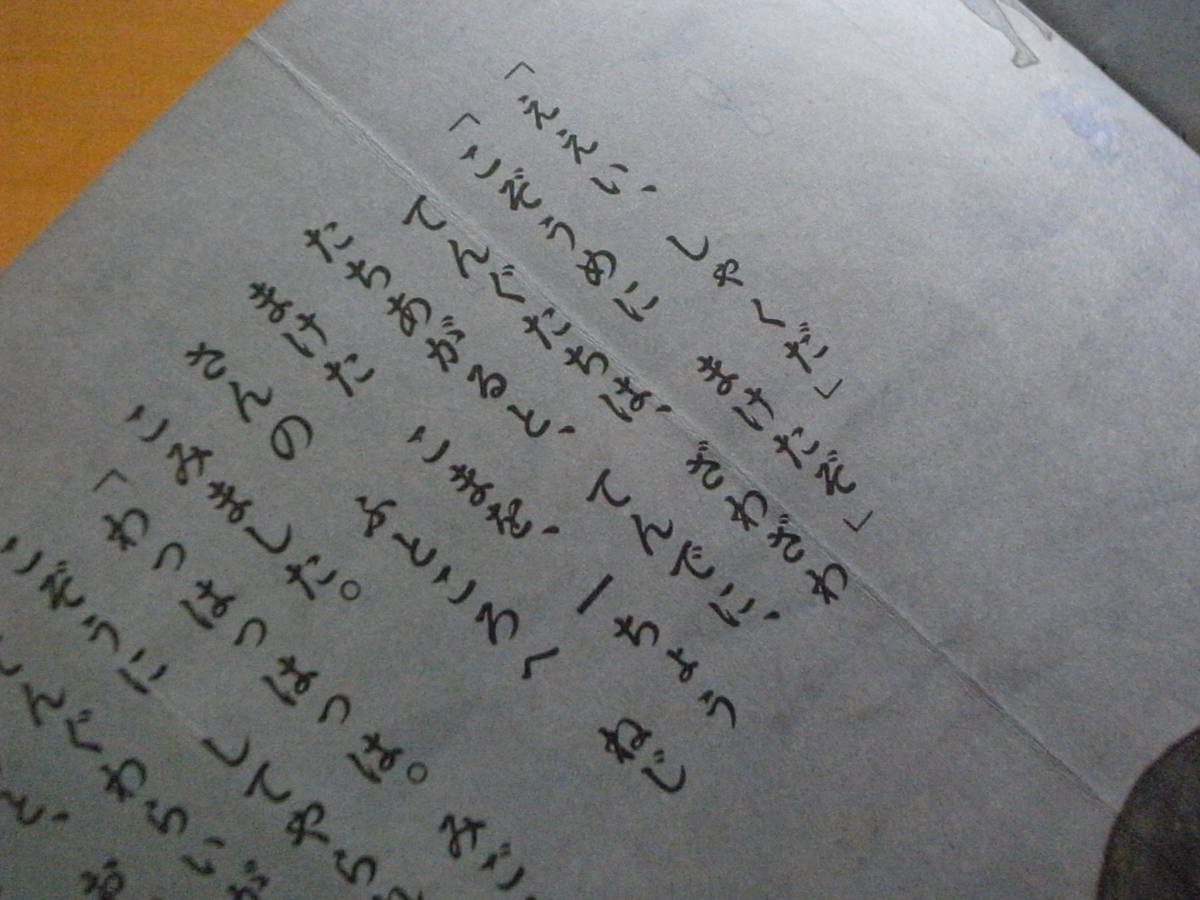 「ええい、 しゃくだ」
「こぞうめに まけたぞ」
てんぐたちは、 ざわざわ
たちあがると、 てんでに、
まけた こまを、 一ちょう
さんの ふところへ ねじ
こみました。
「わっはっはっは。 みご
こぞうに してやら
んぐわらいが
と、 お